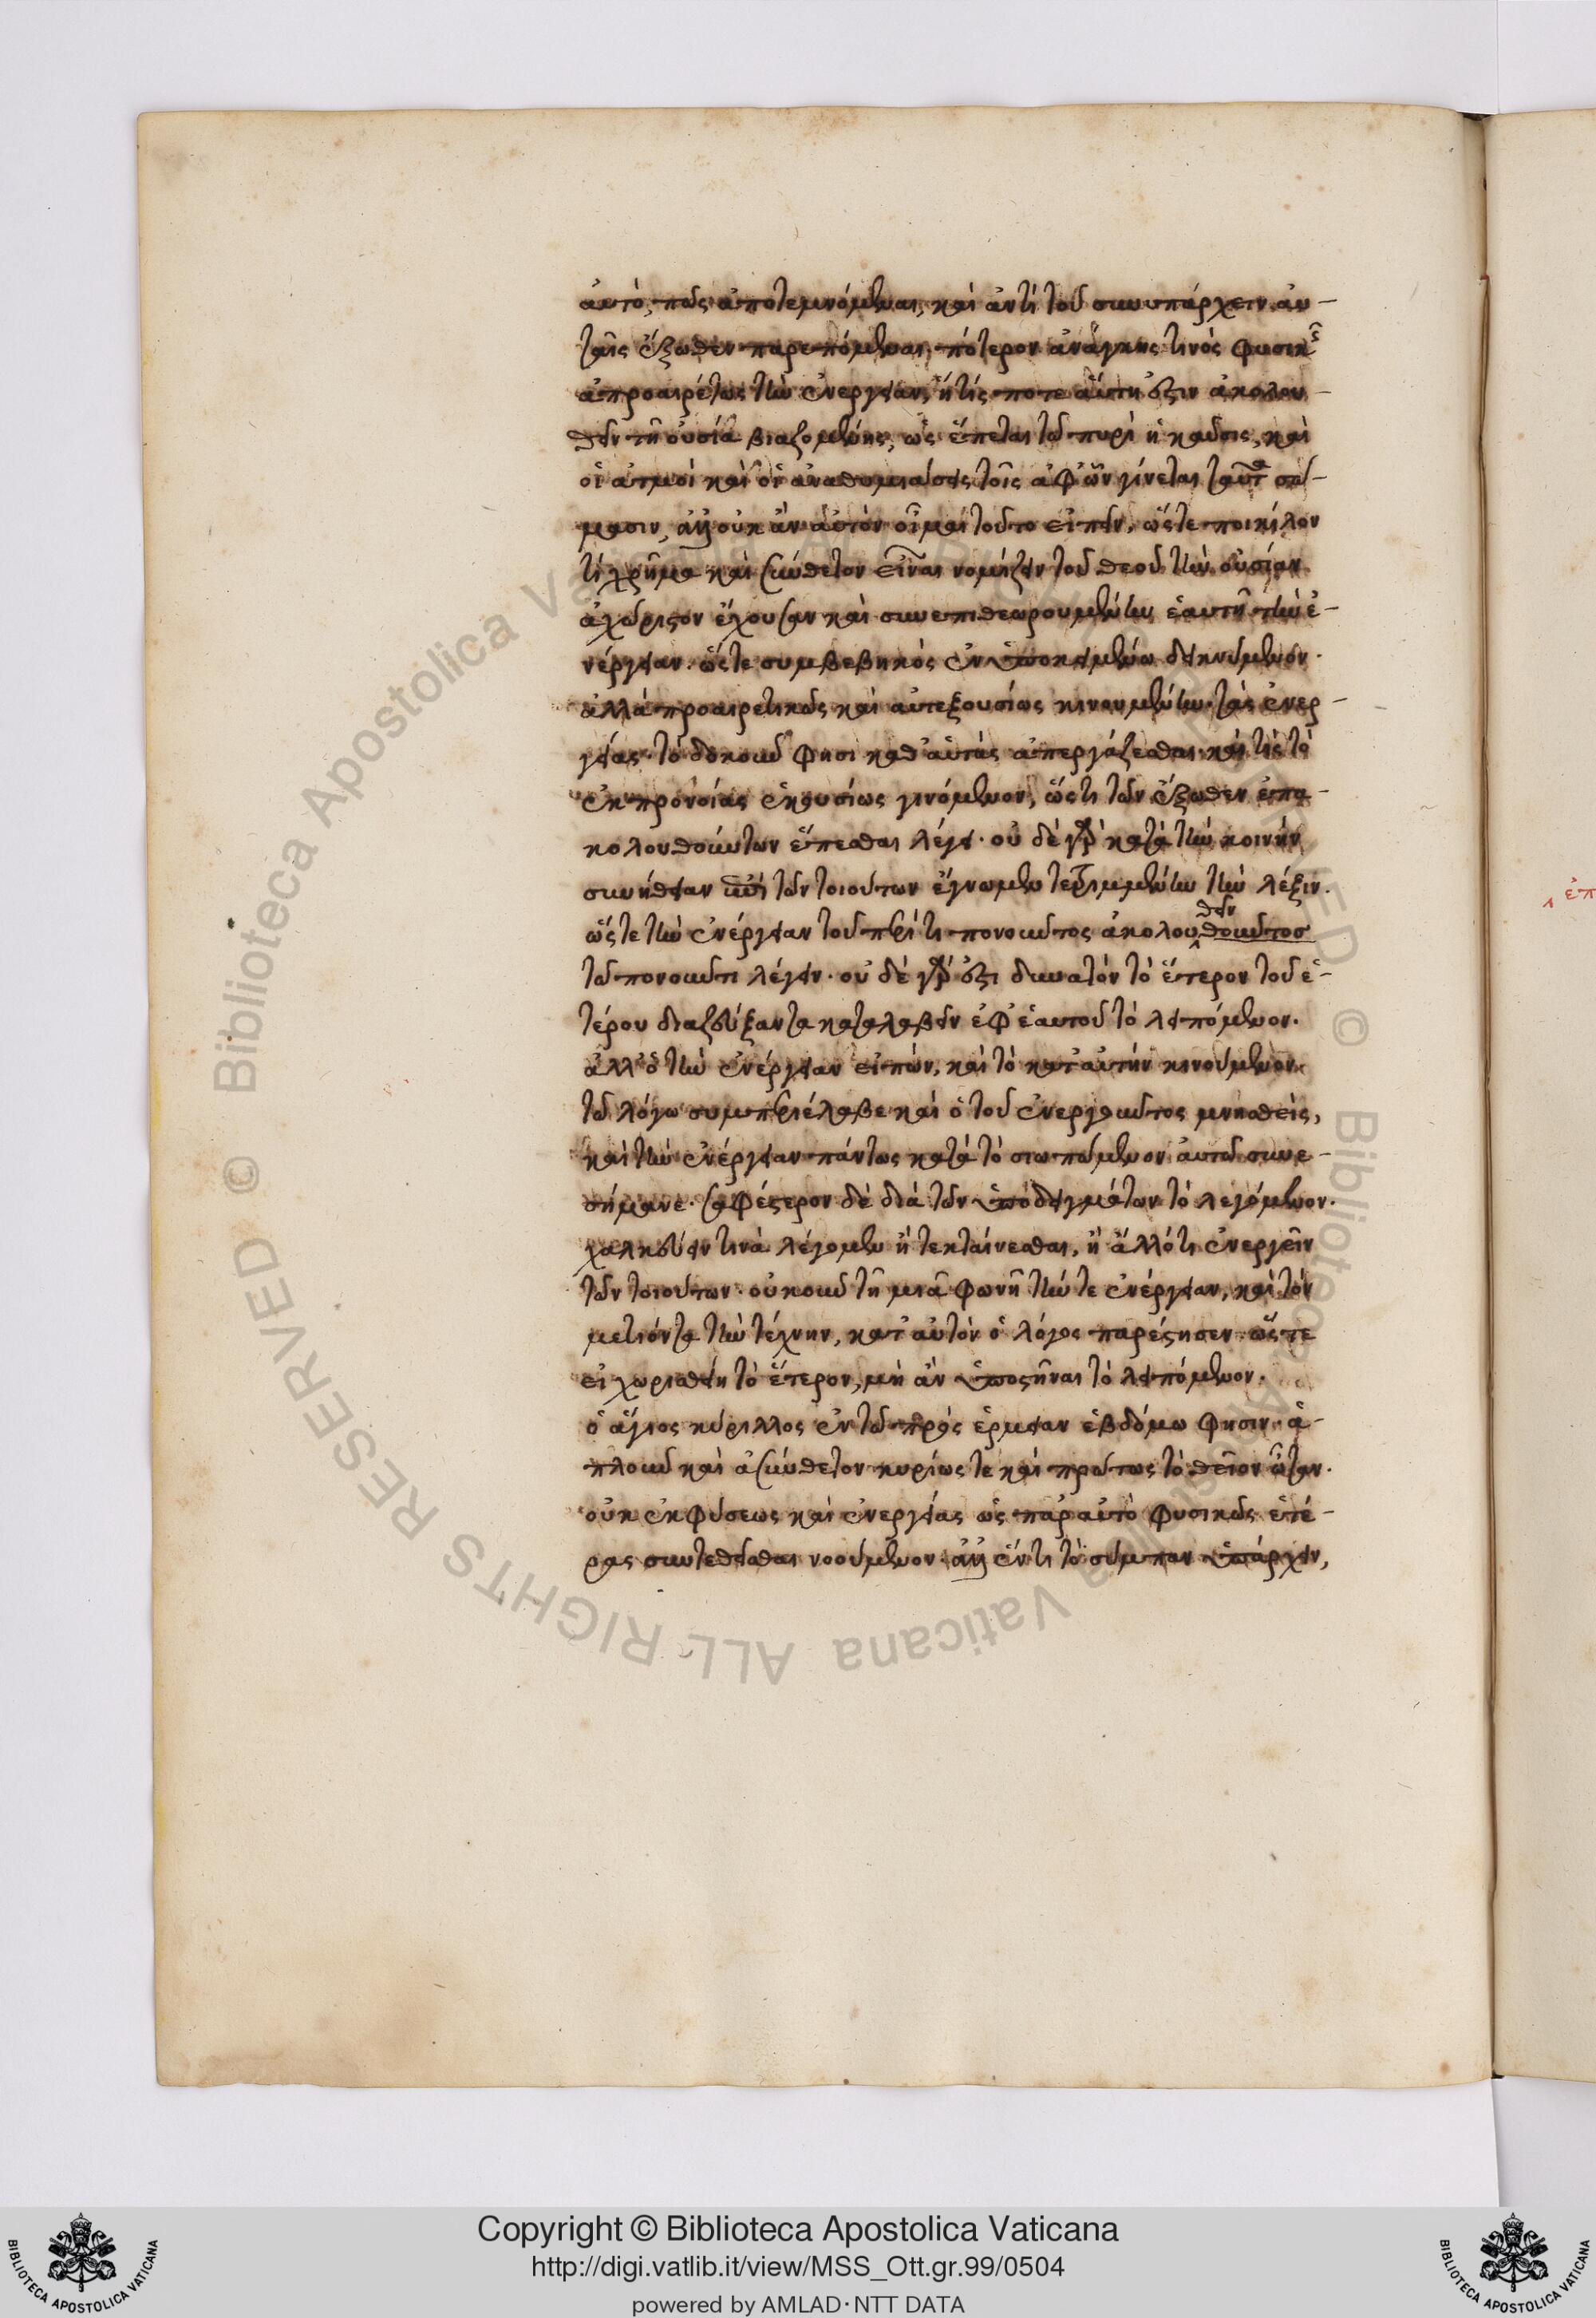 αὐτὸ, πῶς ἀποτεμνόμεναι, καὶ ἀντὶ τοῦ συνυπάρχειν αὐ-
ταῖς ἔξωθεν παρεπόμεναι, πότερον ἀνάγκης τινὸς φυσικῆς
ἀπροαιρέτως τὴν ἐνέργειαν, ἥτίς ποτε αὕτη ἐστὶν ἀκολου-
θεῖν τῇ οὐσίᾳ βιαζομένης, ὡς ἕπεται τῷ πυρὶ ἡ καῦσις, καὶ
οἱ ἀτμοὶ καὶ οἱ ἀναθυμιάσεις τοῖς ἀφ' ὧν γίνεται ταῦτα σώ-
μασιν, ἀλλ' οὐκ ἂν αὐτὸν οἶμαι τοῦτο εἰπεῖν, ὥστε ποικίλον
τι χρῆμα καὶ σύνθετον εἶναι νομίζειν τοῦ θεοῦ τὴν οὐσίαν
ἀχώριστον ἔχουσαν καὶ συνεπιθεωρουμένην ἑαυτῇ τὴν ἐ-
νέργειαν. ὥστε συμβεβηκὸς ἐν ὑποκειμένω δεικνύμενον.
ἀλλὰ προαιρετικῶς καὶ αὐτεξουσίως κινουμένην. τὰς ἐνερ-
γείας. τὸ δοκοῦν φησι καθ' αὑτὰς ἀπεργάζεσθαι. καὶ τίς τὸ
ἐκ προνοίας ἑκουσίως γινόμενον, ὥς τι τῶν ἔξωθεν ἐπα-
κολουθούντων ἕπεσθαι λέγει. οὐ δὲ γὰρ κατὰ τὴν κοινὴν
συνήθειαν ἐπὶ τῶν τοιούτων ἔγνωμεν τετριμμένην τὴν λέξιν.
ὥστε τὴν ἐνέργειαν τοῦ περί τι πονοῦντος ἀκολουθοῦντος
θεῖν
τῷ πονοῦντι λέγειν. οὐ δὲ γάρ ἐστι δυνατὸν τὸ ἕτερον τοῦ ἑ-
τέρου διαζεύξαντα καταλαβεῖν ἐφ' ἑαυτοῦ τὸ λειπόμενον.
ἀλλ' ὁ τὴν ἐνέργειαν εἰπὼν, καὶ τὸ κατ' αὐτὴν κινούμενον
τῷ λόγω συμπεριέλαβε καὶ ὁ τοῦ ἐνεργοῦντος μνησθεὶς,
καὶ τὴν ἐνέργειαν πάντως κατὰ τὸ σιωπώμενον αὐτῷ συνε-
σήμανε. σαφέστερον δὲ διὰ τῶν ὑποδειγμάτων τὸ λεγόμενον.
χαλκεύειν τινὰ λέγομεν ἢ τεκταίνεσθαι, ἢ ἄλλό τι ἐνεργεῖν
τῶν τοιούτων. οὐκοῦν τῇ μιᾷ φωνῇ τήν τε ἐνέργειαν, καὶ τὸν
μετιόντα τὴν τέχνην, κατ' αὐτὸν ὁ λόγος παρέστησεν. ὥστε
εἰ χωρισθείη τὸ ἕτερον, μὴ ἂν ὑποστῆναι τὸ λειπόμενον.
ὁ ἅγιος κύριλλος ἐν τῷ πρὸς ἑρμείαν ἑβδόμω φησιν. ἁ-
πλοῦν καὶ ἀσύνθετον κυρίως τε καὶ πρώτως τὸ θεῖον
οὐκ ἐκ φύσεως καὶ ἐνεργείας ὡς παρ' αὐτὸ φυσικῶς ἑτέ-
ρας συντεθεῖσθαι νοούμενον. ἀλλ' ἕν τι τὸ σύμπαν ὑπάρχειν,
Copyright © Biblioteca Apostolica Vaticana
http://digi.vatlib.it/view/MSS_Ott.gr.99/0504
powered by AMLAD·NTT DATA